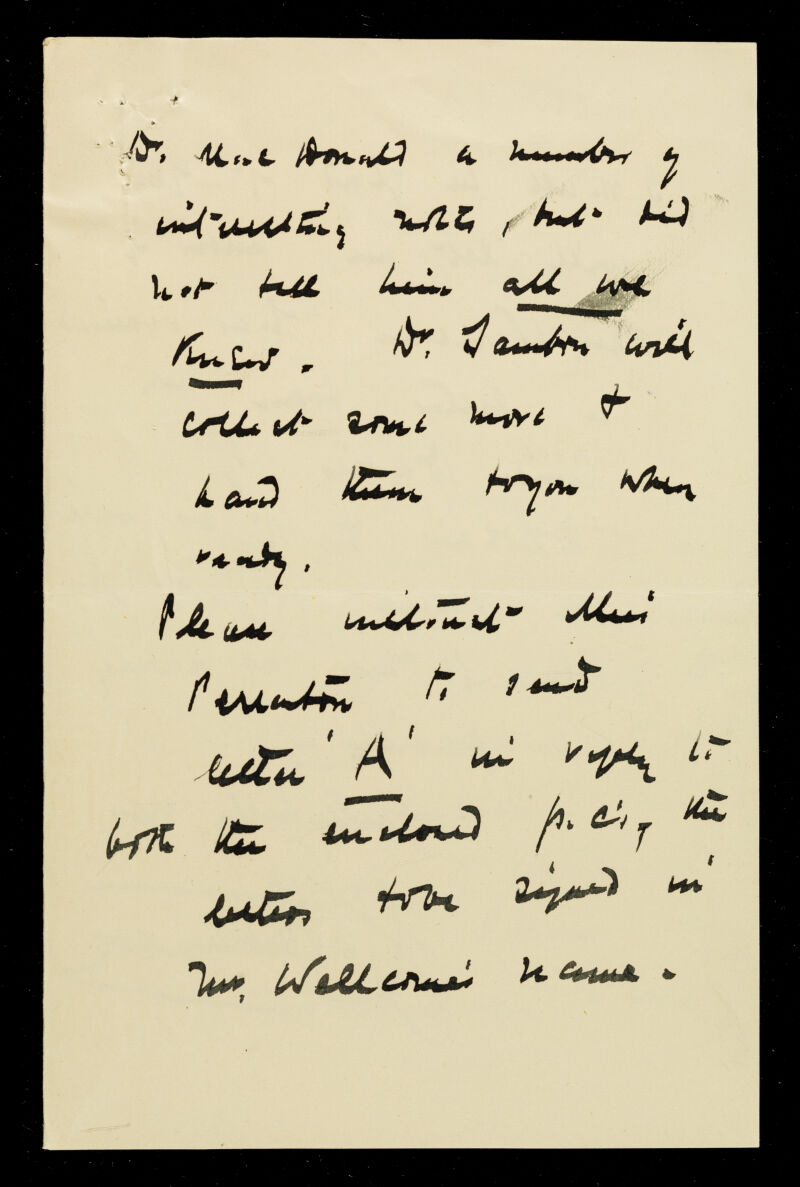 Dr. Mac Donald a number of
interesting notes, but did
not tell him all we
knew. Dr. Sambon will
collect some more &
hand them to you when
ready.
Please instruct Miss
Perraton to send
letter 'A' in reply to
both the enclosed p.c's, the
letters to be signed in
Mr. Wellcome's name.